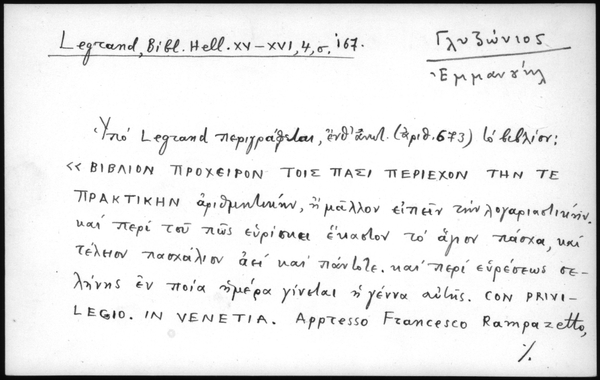 Legrand, Bibl. Hell. XV–XVI, 4, σ. 167.
Γλυζώνιος
Ἐμμανυήλ
Ὑπὸ Legrand περιγράφεται, ἔνθ' ἀνωτ. (ἀριθ. 673) τὸ βιβλίον:
« ΒΙΒΛΙΟΝ ΠΡΟΧΕΙΡΟΝ ΤΟΙΣ ΠΑΣΙ ΠΕΡΙΕΧΟΝ ΤΗΝ ΤΕ
ΠΡΑΚΤΙΚΗΝ ἀριθμητικήν, ἢ μᾶλλον εἰπεῖν τὴν λογαριαστικήν.
καὶ περὶ τοῦ πῶς εὑρίσκει ἕκαστον τὸ ἅγιον πάσχα, καὶ
τέλειον πασχάλιον ἀεὶ καὶ πάντοτε. καὶ περὶ εὑρέσεως σε-
λήνης ἐν ποία ἡμέρα γίνεται ἡ γέννα αὐτῆς. CON PRIVI-
LEGIO. IN VENETIA. Appresso Francesco Rampazetto,
%.